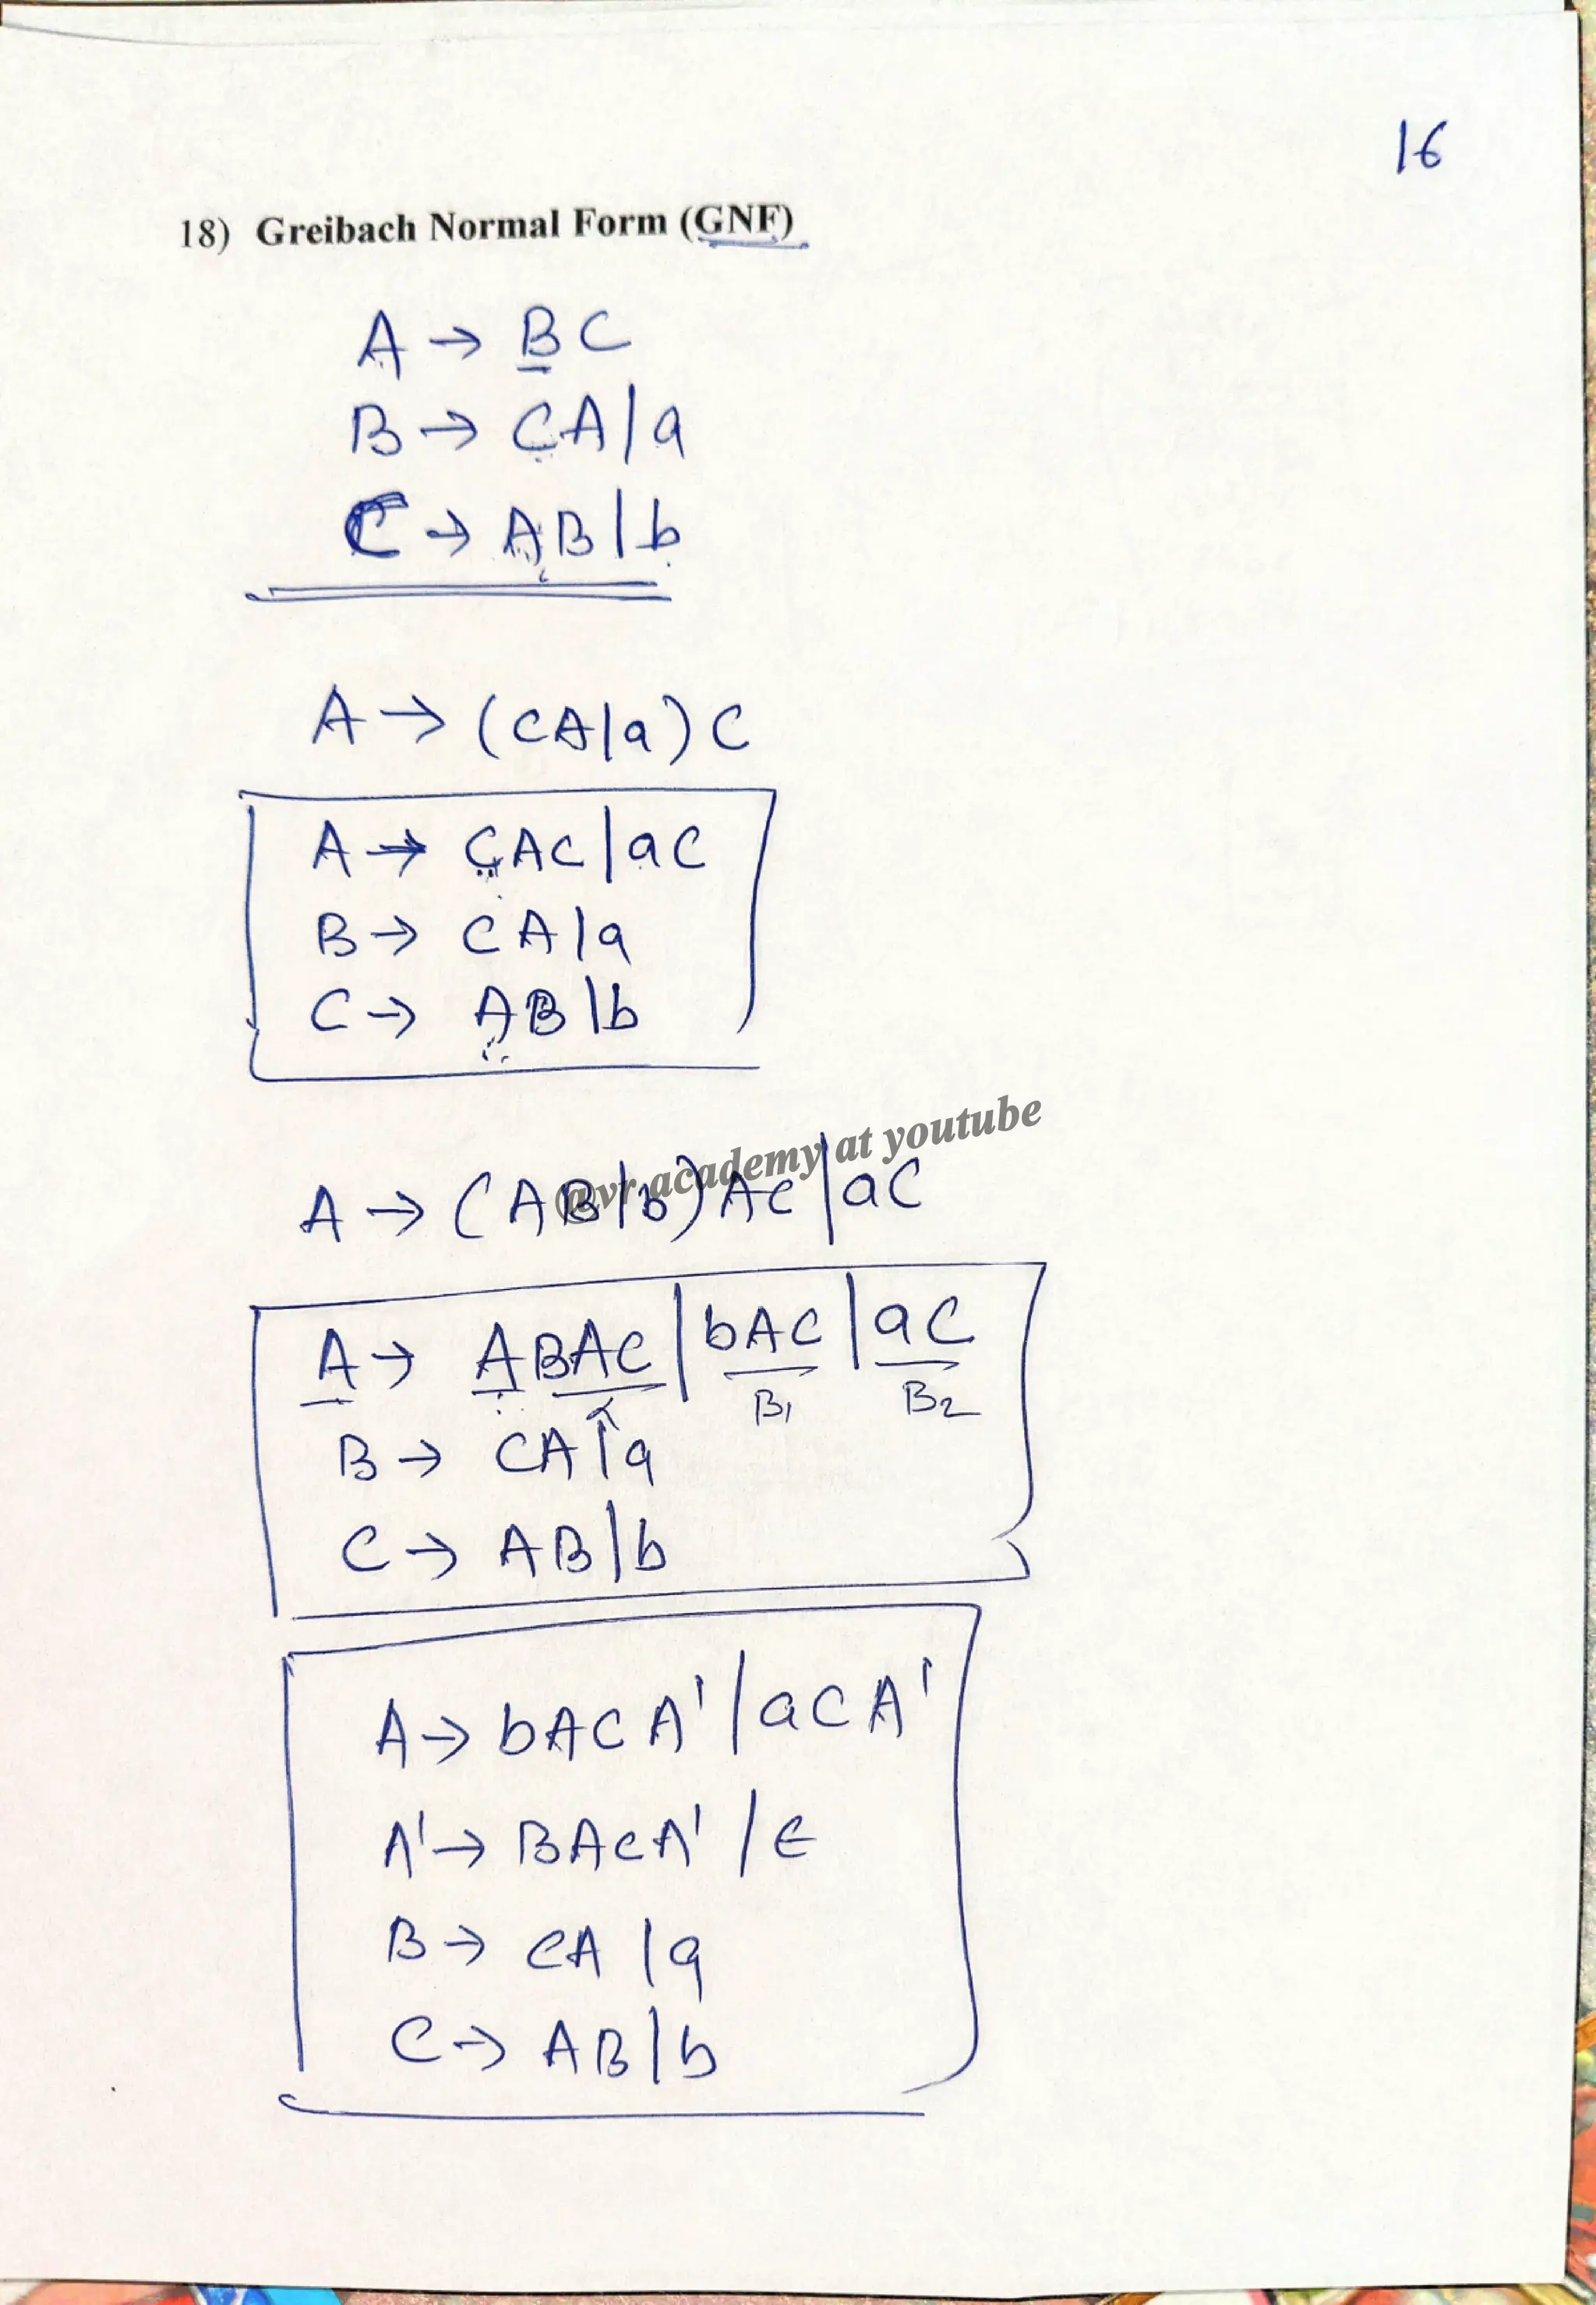 16
18) Greibach Normal Form (GNF)
A → B C
B → C A | a
C → A B | b
A → (C A | a) C
A → C A C | a C
B → C A | a
C → A B | b
@vr academy at youtube
A → (A B | b) A C | a C
A → A B A C | b A C | a C
α B1 B2
B → C A | a
C → A B | b
A → b A C A' | a C A'
A' → B A C A' / ϵ
B → C A | a
C → A B | b